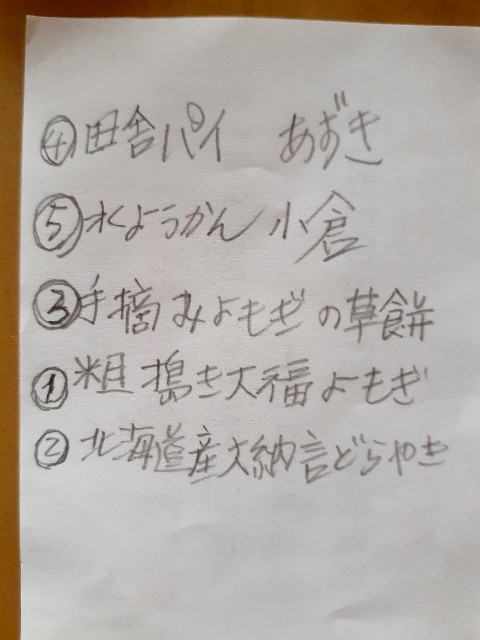 ④田舎パイ あずき
⑤水ようかん 小倉
③手摘みよもぎの草餅
①粗搗き大福よもぎ
②北海道産大納言どらやき